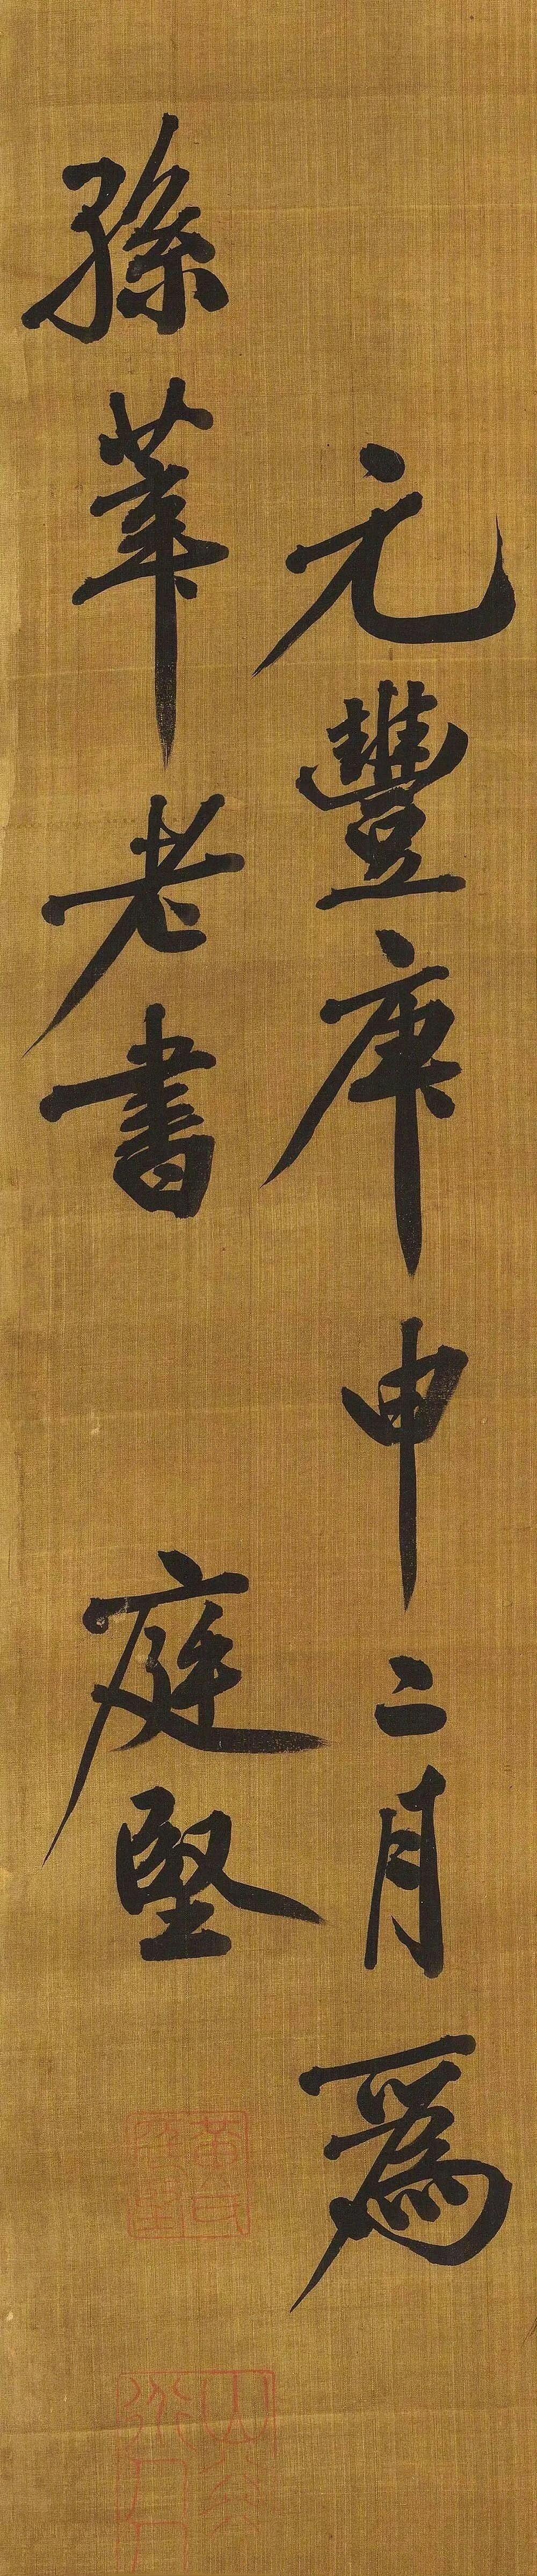 元豐庚申二月爲
孫莘老書 庭堅